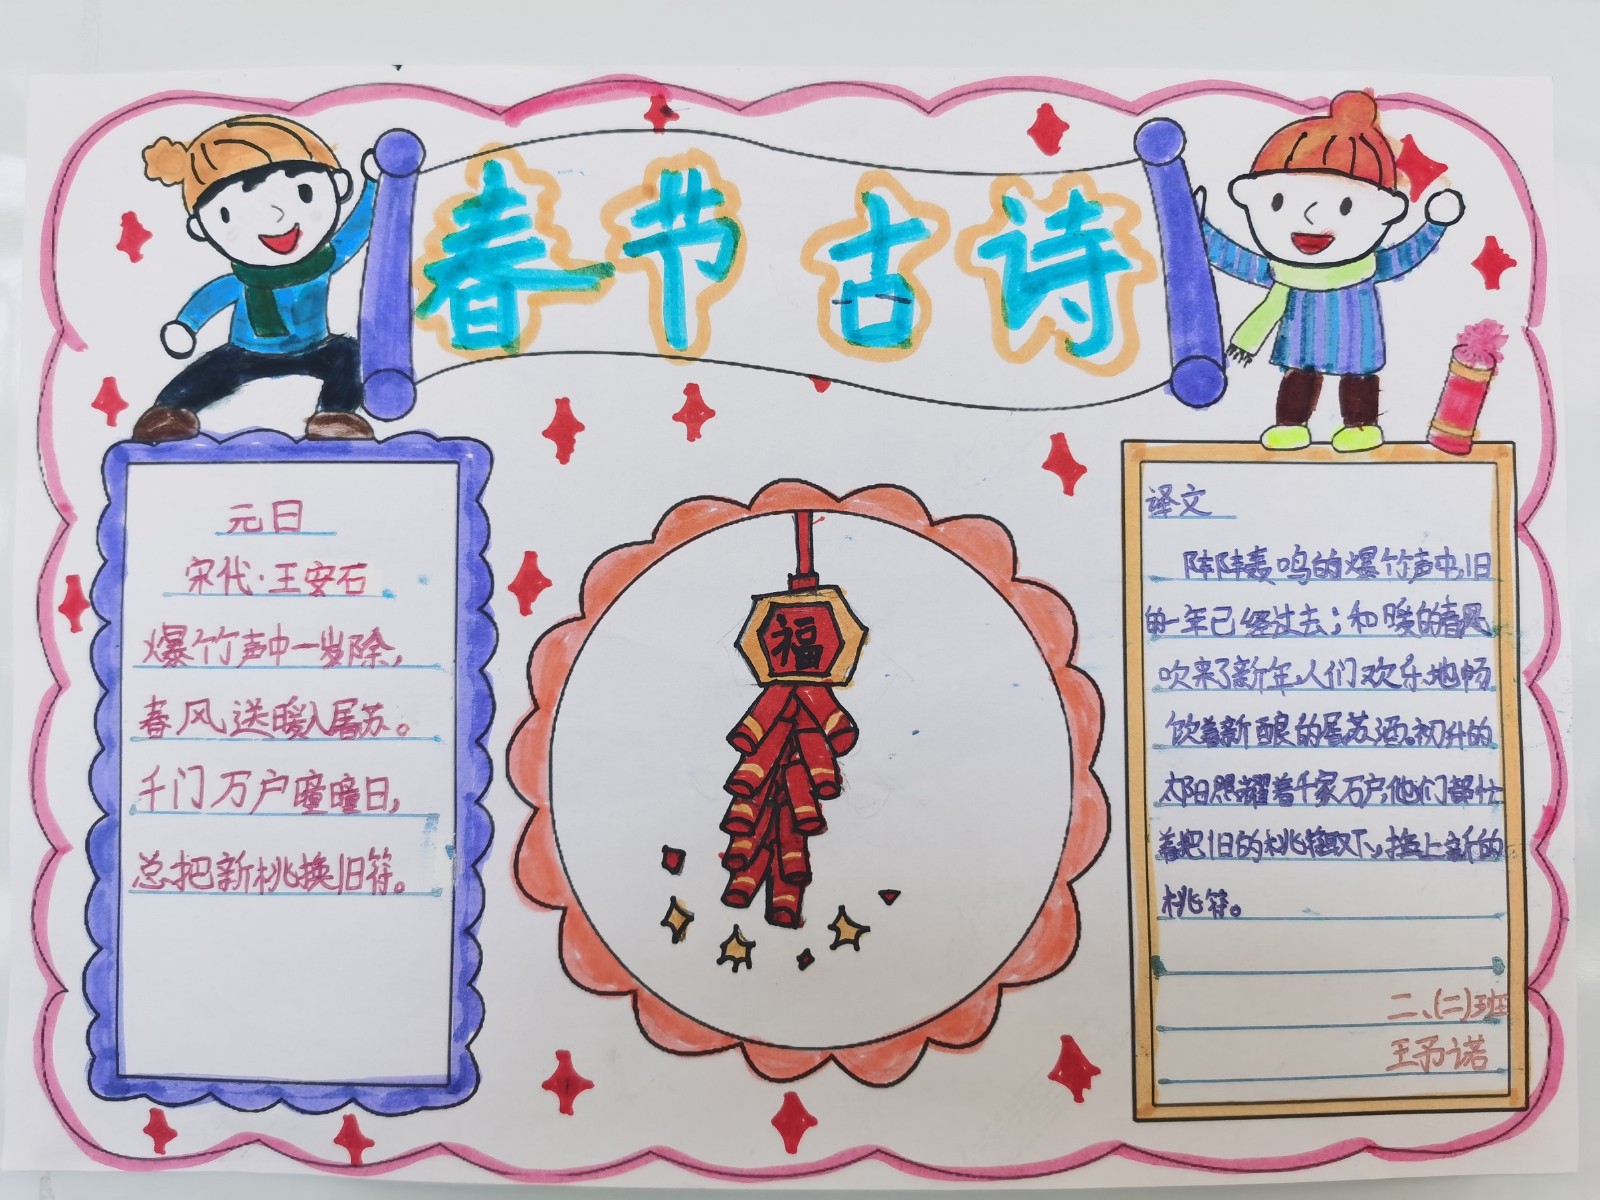 春节 古诗
元日
宋代·王安石
爆竹声中一岁除，
春风送暖入屠苏。
千门万户曈曈日，
总把新桃换旧符。
福
译文
阵阵轰鸣的爆竹声中，旧
的一年已经过去；和暖的春风
吹来了新年，人们欢乐地畅
饮着新酿的屠苏酒。初升的
太阳照耀着千家万户，他们都忙
着把旧的桃符取下，换上新的
桃符。
二、(二)班
王予诺